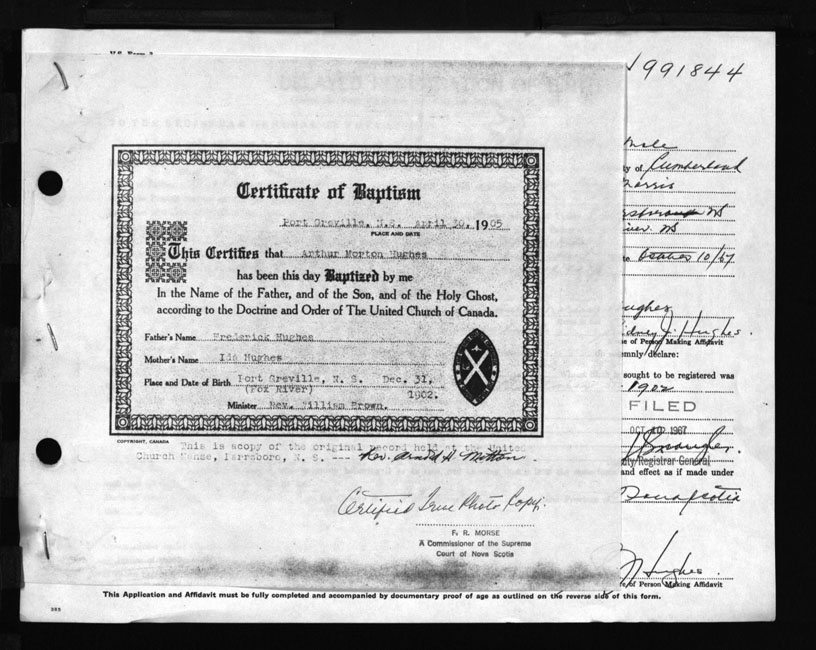 1991844
Male
ty of Cumberland
Certificate of Baptism
Port Greville, N.S. April 30, 1905
PLACE AND DATE
This Certifies that Arthur Morton Hughes
has been this day Baptized by me
In the Name of the Father, and of the Son, and of the Holy Ghost,
according to the Doctrine and Order of The United Church of Canada.
Father's Name Frederick Hughes
Mother's Name Ida Hughes
Place and Date of Birth Port Greville, N. S. Dec. 31,
(Fox River) 1902.
Minister Rev. William Brown.
COPYRIGHT, CANADA
This is acopy of the original record held at the United
Church Manse, Parrsboro, N. S. ---
Certified True Photo Copy.
F. R. MORSE
A Commissioner of the Supreme
Court of Nova Scotia
October 10/67
Hughes
Sidney J. Hughes.
e of Person Making Affidavit
emnly declare:
sought to be registered was
1902
FILED
OCT 1967
ty Registrar General
and effect as if made under
Nova Scotia
Hughes.
re of Person Making Affidavit
This Application and Affidavit must be fully completed and accompanied by documentary proof of age as outlined on the reverse side of this form.